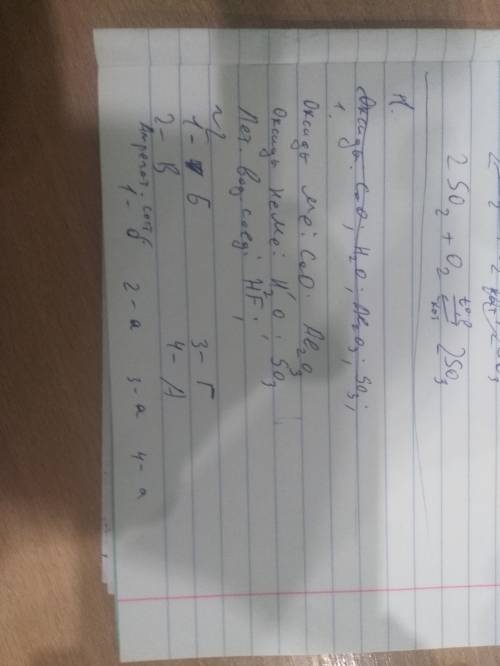 2SO₂ + O₂ ⇄ 2SO₃
1.
Оксиды: CaO; H₂O; Al₂O₃; SO₃;
Оксиды Me: CaO; Al₂O₃
Оксиды НеМе: H₂O; SO₃
Лет. вод. соед: HF;
№2
1- Б 3- Г
2- В 4- А
Агрегат. сост
1- б 2- а 3- а 4- а